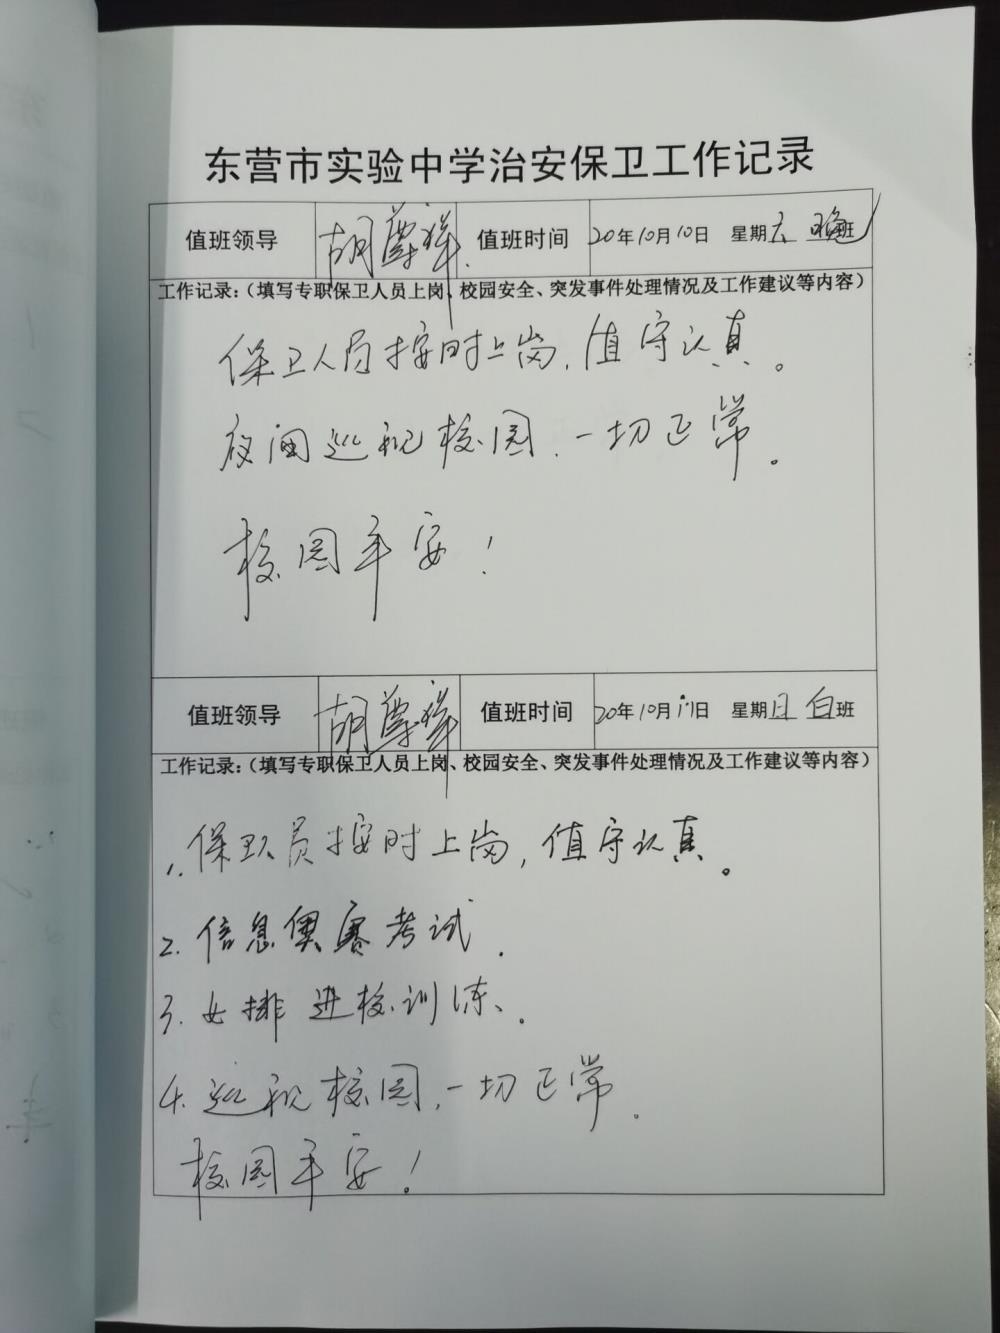 东营市实验中学治安保卫工作记录
值班领导 胡尊祥 值班时间 20年10月10日 星期六 晚班
工作记录:（填写专职保卫人员上岗、校园安全、突发事件处理情况及工作建议等内容）
保卫人员按时上岗,值守认真。
夜间巡视校园,一切正常。
校园平安!
值班领导 胡尊祥 值班时间 20年10月11日 星期日 白班
工作记录:（填写专职保卫人员上岗、校园安全、突发事件处理情况及工作建议等内容）
1.保卫人员按时上岗,值守认真。
2.信息奥赛考试.
3.女排进校训练.
4.巡视校园,一切正常.
校园平安!